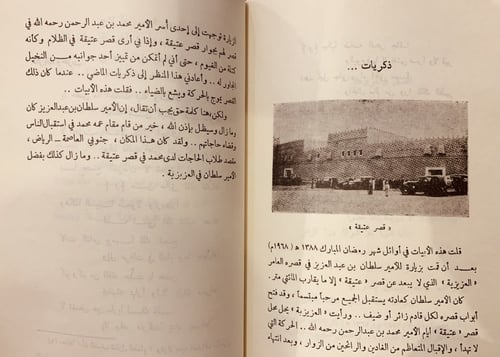 ذكريات ...
« قصر عتيقة »
قلت هذه الأبيات في أوائل شهر رمضان المبارك ١٣٨٨ هـ (١٩٦٨م)
بعد أن قمت بزيارة للأمير سلطان بن عبد العزيز في قصره العامر
« العزيزية » الذي لا يبعد عن قصر « عتيقة » إلا ما يقارب المائتي متر.
كان الأمير سلطان كعادته يستقبل الجميع مرحباً مبتسماً، وقد فتح
أبواب قصره لكل قادم زائر أو ضيف . . ورأيت « العزيزية » يحل محل
« عتيقة » أيام الأمير محمد بن عبد الرحمن رحمه الله . . الحركة التي
لا تهدأ ، والإقبال المتعاظم من الغادين والرائحين من الزوار ، وبعد انتهاء
الزيارة توجهت إلى إحدى أسر الأمير محمد بن عبد الرحمن رحمه الله في
قصر لهم بجوار قصر عتيقة ، وإذا بي أرى قصر عتيقة في الظلام وكأنه
كتلة من الغيوم ، حتى أني لم أتمكن من تمييز أحد جوانبه من النخيل
المجاور له . . وأعادني هذا المنظر إلى ذكريات الماضي . . عندما كان ذلك
القصر يموج بالحركة ويشع بالضياء . . فقلت هذه الأبيات . .
ولكن ! هنا كلمة حق يجب أن تقال ، إن الأمير سلطان بن عبد العزيز كان
وما زال وسيظل بإذن الله ، خير من قام مقام عمه محمد في استقبال الناس
وقضاء حاجاتهم . . ولقد كان هذا المكان ، جنوبي العاصمة – الرياض ،
مقصد طلاب الحاجات لدى محمد في قصر عتيقة . . وما زال كذلك بفضل
الأمير سلطان في العزيزية .